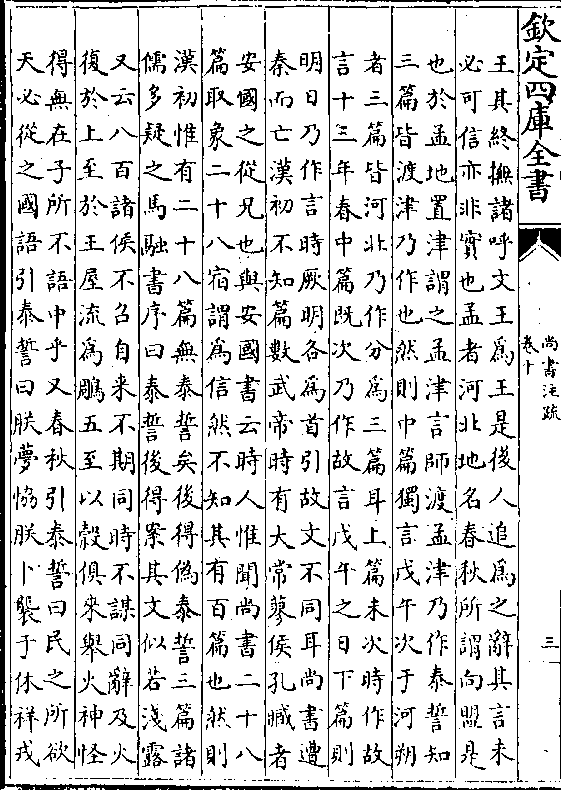 欽定四庫全書
尚書注疏
卷十
三
王其終撫諸呼文王為王是後人追為之辭其言未
必可信亦非實也孟者河北地名春秋所謂向盟是
也於孟地置津謂之孟津言師渡孟津乃作泰誓知
三篇皆渡津乃作也然則中篇獨言戊午次于河朔
者三篇皆河北乃作分為三篇耳上篇未次時作故
言十三年春中篇既次乃作故言戊午之日下篇則
明日乃作言時厥明各為首引故文不同耳尚書遭
秦而亡漢初不知篇數武帝時有大常蓼侯孔臧者
安國之從兄也與安國書云時人惟聞尚書二十八
篇取象二十八宿謂為信然不知其有百篇也然則
漢初惟有二十八篇無泰誓矣後得偽泰誓三篇諸
儒多疑之馬融書序曰泰誓後得案其文似若淺露
又云八百諸侯不召自来不期同時不謀同辭及火
復於上至於王屋流為鵰五至以穀俱來舉火神怪
得無在子所不語中乎又春秋引泰誓曰民之所欲
天必從之國語引泰誓曰朕夢恊朕卜襲于休祥戎